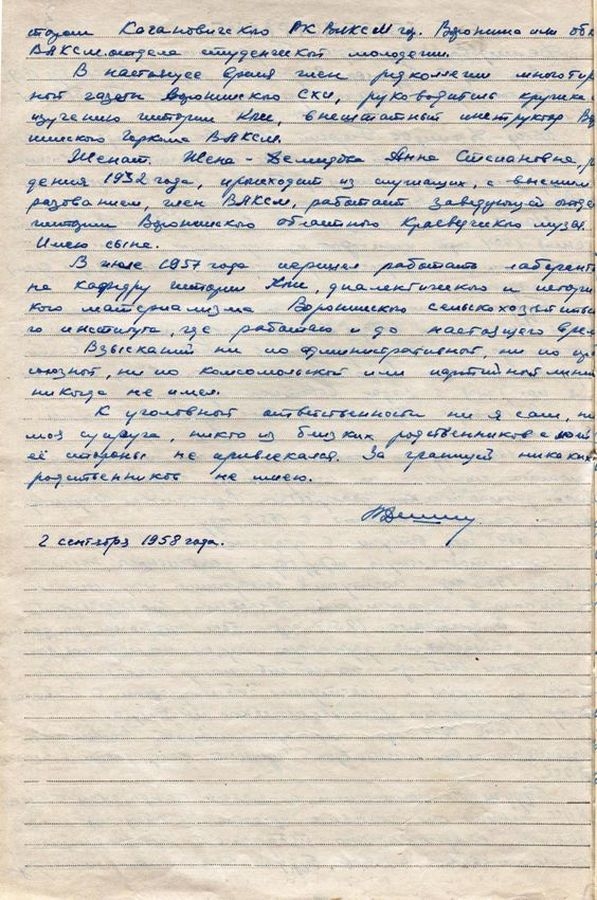 Кагановичского РК ВЛКСМ гор. Воронежа или об
ВЛКСМ. отдела студенческой молодежи.
В настоящее время член редколлегии многотир
ной газеты Воронежского СХИ, руководитель кружка
изучению истории КПСС, внештатный инструктор Во
нежского Горкома ВЛКСМ.
Женат. Жена - Анна Степановна, р
дения 1932 года, происходит из служащих, с высшим
разованием, член ВЛКСМ, работает заведующей отде
истории Воронежского областного Краеведческого музея.
Имею сына.
В июле 1957 года перешел работать лаборант
на кафедру истории КПСС, диалектического и истори
кого материализма Воронежского сельскохозяйственно
го института, где работаю и до настоящего врем
Взысканий ни по административной, ни по про
союзной, ни по комсомольской или партийной линии
никогда не имел.
К уголовной ответственности ни я сам, ни
моя супруга, никто из близких родственников с моей
её стороны не привлекался. За границей никаких
родственников не имею.
2 сентября 1958 года.